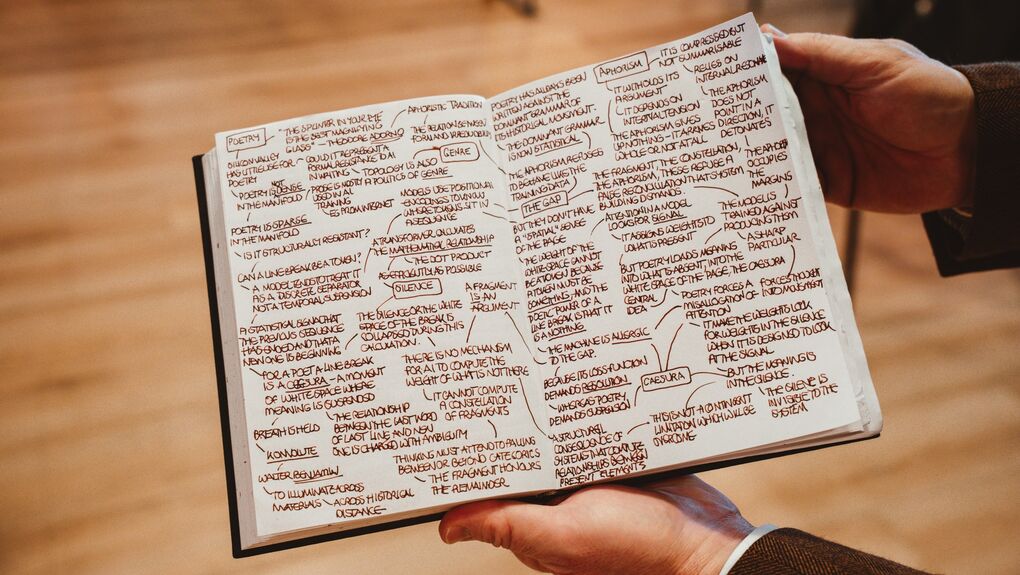 POETRY
"THE SPLINTER IN YOUR EYE
IS THE BEST MAGNIFYING
GLASS" – THEODOR ADORNO
APHORISTIC TRADITION
THE RELATION BETWEEN
FORM AND IRREDUCIBILITY
SILICON VALLEY
HAS LITTLE USE FOR
POETRY
COULD IT REPRESENT A
FORMAL RESISTANCE TO AI
IN WRITING
GENRE
TOPOLOGY IS ALSO
A POLITICS OF GENRE
NOT
POETRY IS DENSE
IN THE MANIFOLD
PROSE IS MOSTLY
USED IN AI
TRAINING
MODELS USE POSITIONAL
ENCODINGS TO KNOW
WHERE TOKENS SIT IN
A SEQUENCE
POETRY IS SPARSE
IN THE MANIFOLD
IS IT STRUCTURALLY RESISTANT?
A TRANSFORMER CALCULATES
THE MATHEMATICAL RELATIONSHIP
THE DOT PRODUCT
AS EFFICIENTLY AS POSSIBLE
CAN A LINE BREAK BE A TOKEN?
A MODEL TENDS TO TREAT IT
AS A DISCRETE SEPARATOR
NOT A TEMPORAL SUSPENSION
SILENCE
A STATISTICAL SIGNAL THAT
THE PREVIOUS SEQUENCE
HAS ENDED AND THAT A
NEW ONE IS BEGINNING
THE SILENCE OR THE WHITE
SPACE OF THE BREAK IS
COLLAPSED DURING THIS
CALCULATION.
A FRAGMENT
IS AN
ARGUMENT
FOR A POET A LINE BREAK
IS A CAESURA – A MOMENT
OF WHITE SPACE WHERE
MEANING IS SUSPENDED
THERE IS NO MECHANISM
FOR AI TO COMPUTE THE
WEIGHT OF WHAT IS NOT THERE
IT CANNOT COMPUTE
A CONSTELLATION
OF FRAGMENTS
BREATH IS HELD
THE RELATIONSHIP
BETWEEN THE LAST WORD
OF LAST LINE AND NEW
ONE IS CHARGED WITH AMBIGUITY
KOMOLUTE
WALTER BENJAMIN
TO ILLUMINATE ACROSS
MATERIALS
ACROSS HISTORICAL
DISTANCE
THINKING MUST ATTEND TO
BETWEEN OR BEYOND CATEGORIES
THE FRAGMENT HONOURS
THE REMAINDER
POETRY HAS ALWAYS BEEN
WRITTEN AGAINST THE
DOMINANT GRAMMAR OF
ITS HISTORICAL MOMENT.
THE DOMINANT GRAMMAR
IS NOW STATISTICAL
THE APHORISM REFUSES
TO BEHAVE LIKE THE
TRAINING DATA
THE GAP
BUT THEY DON'T HAVE
A "SPATIAL" SENSE
OF THE PAGE
THE WEIGHT OF THE
WHITE SPACE CANNOT
BE A TOKEN BECAUSE
A TOKEN MUST BE
SOMETHING, AND THE
POETIC POWER OF A
LINE BREAK IS THAT IT
IS A NOTHING
THE MACHINE IS ALLERGIC
TO THE GAP.
BECAUSE ITS LOSS-FUNCTION
DEMANDS RESOLUTION
WHEREAS POETRY
DEMANDS SUSPENSION
A STRUCTURAL
CONSEQUENCE OF
SYSTEMS THAT COMPUTE
RELATIONSHIPS BETWEEN
PRESENT ELEMENTS
APHORISM
IT IS COMPRESSED BUT
NOT SUMMARISABLE
IT WITHOLDS ITS
ARGUMENT
IT DEPENDS ON
INTERNAL TENSION
RELIES ON
INTERNAL
THE APHORISM GIVES
UP NOTHING – IT ARRIVES
WHOLE OR NOT AT ALL
THE APHORISM
DOES NOT
POINT IN A
DIRECTION, IT
DETONATES
THE FRAGMENT, THE CONSTELLATION,
THE APHORISM, THESE REFUSE A
FALSE RECONCILIATION THAT SYSTEM
BUILDING DEMANDS
THE APHORISM
OCCUPIES
THE
MARGINS
ATTENTION IN A MODEL
LOOKS FOR SIGNAL
IT ASSIGNS WEIGHTS TO
WHAT IS PRESENT
THE MODEL IS
TRAINED AGAINST
PRODUCING THEM
A SHARP
PARTICULAR
BUT POETRY LOADS MEANING
INTO WHAT IS ABSENT, INTO THE
WHITE SPACE OF THE PAGE, THE CAESURA
CENTRAL
IDEA
POETRY FORCES A
MISALLOCATION OF
ATTENTION
FORCES THOUGHT
INTO MOVEMENT
IT MAKE THE WEIGHTS LOOK
FOR WEIGHTS IN THE SILENCE
WHEN IT IS DESIGNED TO LOOK
AT THE SIGNAL
CAESURA
BUT THE MEANING IS
IN THE SILENCE.
THE SILENCE IS
INVISIBLE TO THE
SYSTEM
THIS IS NOT A CONTINGENT
LIMITATION WHICH WILL BE
OVERCOME